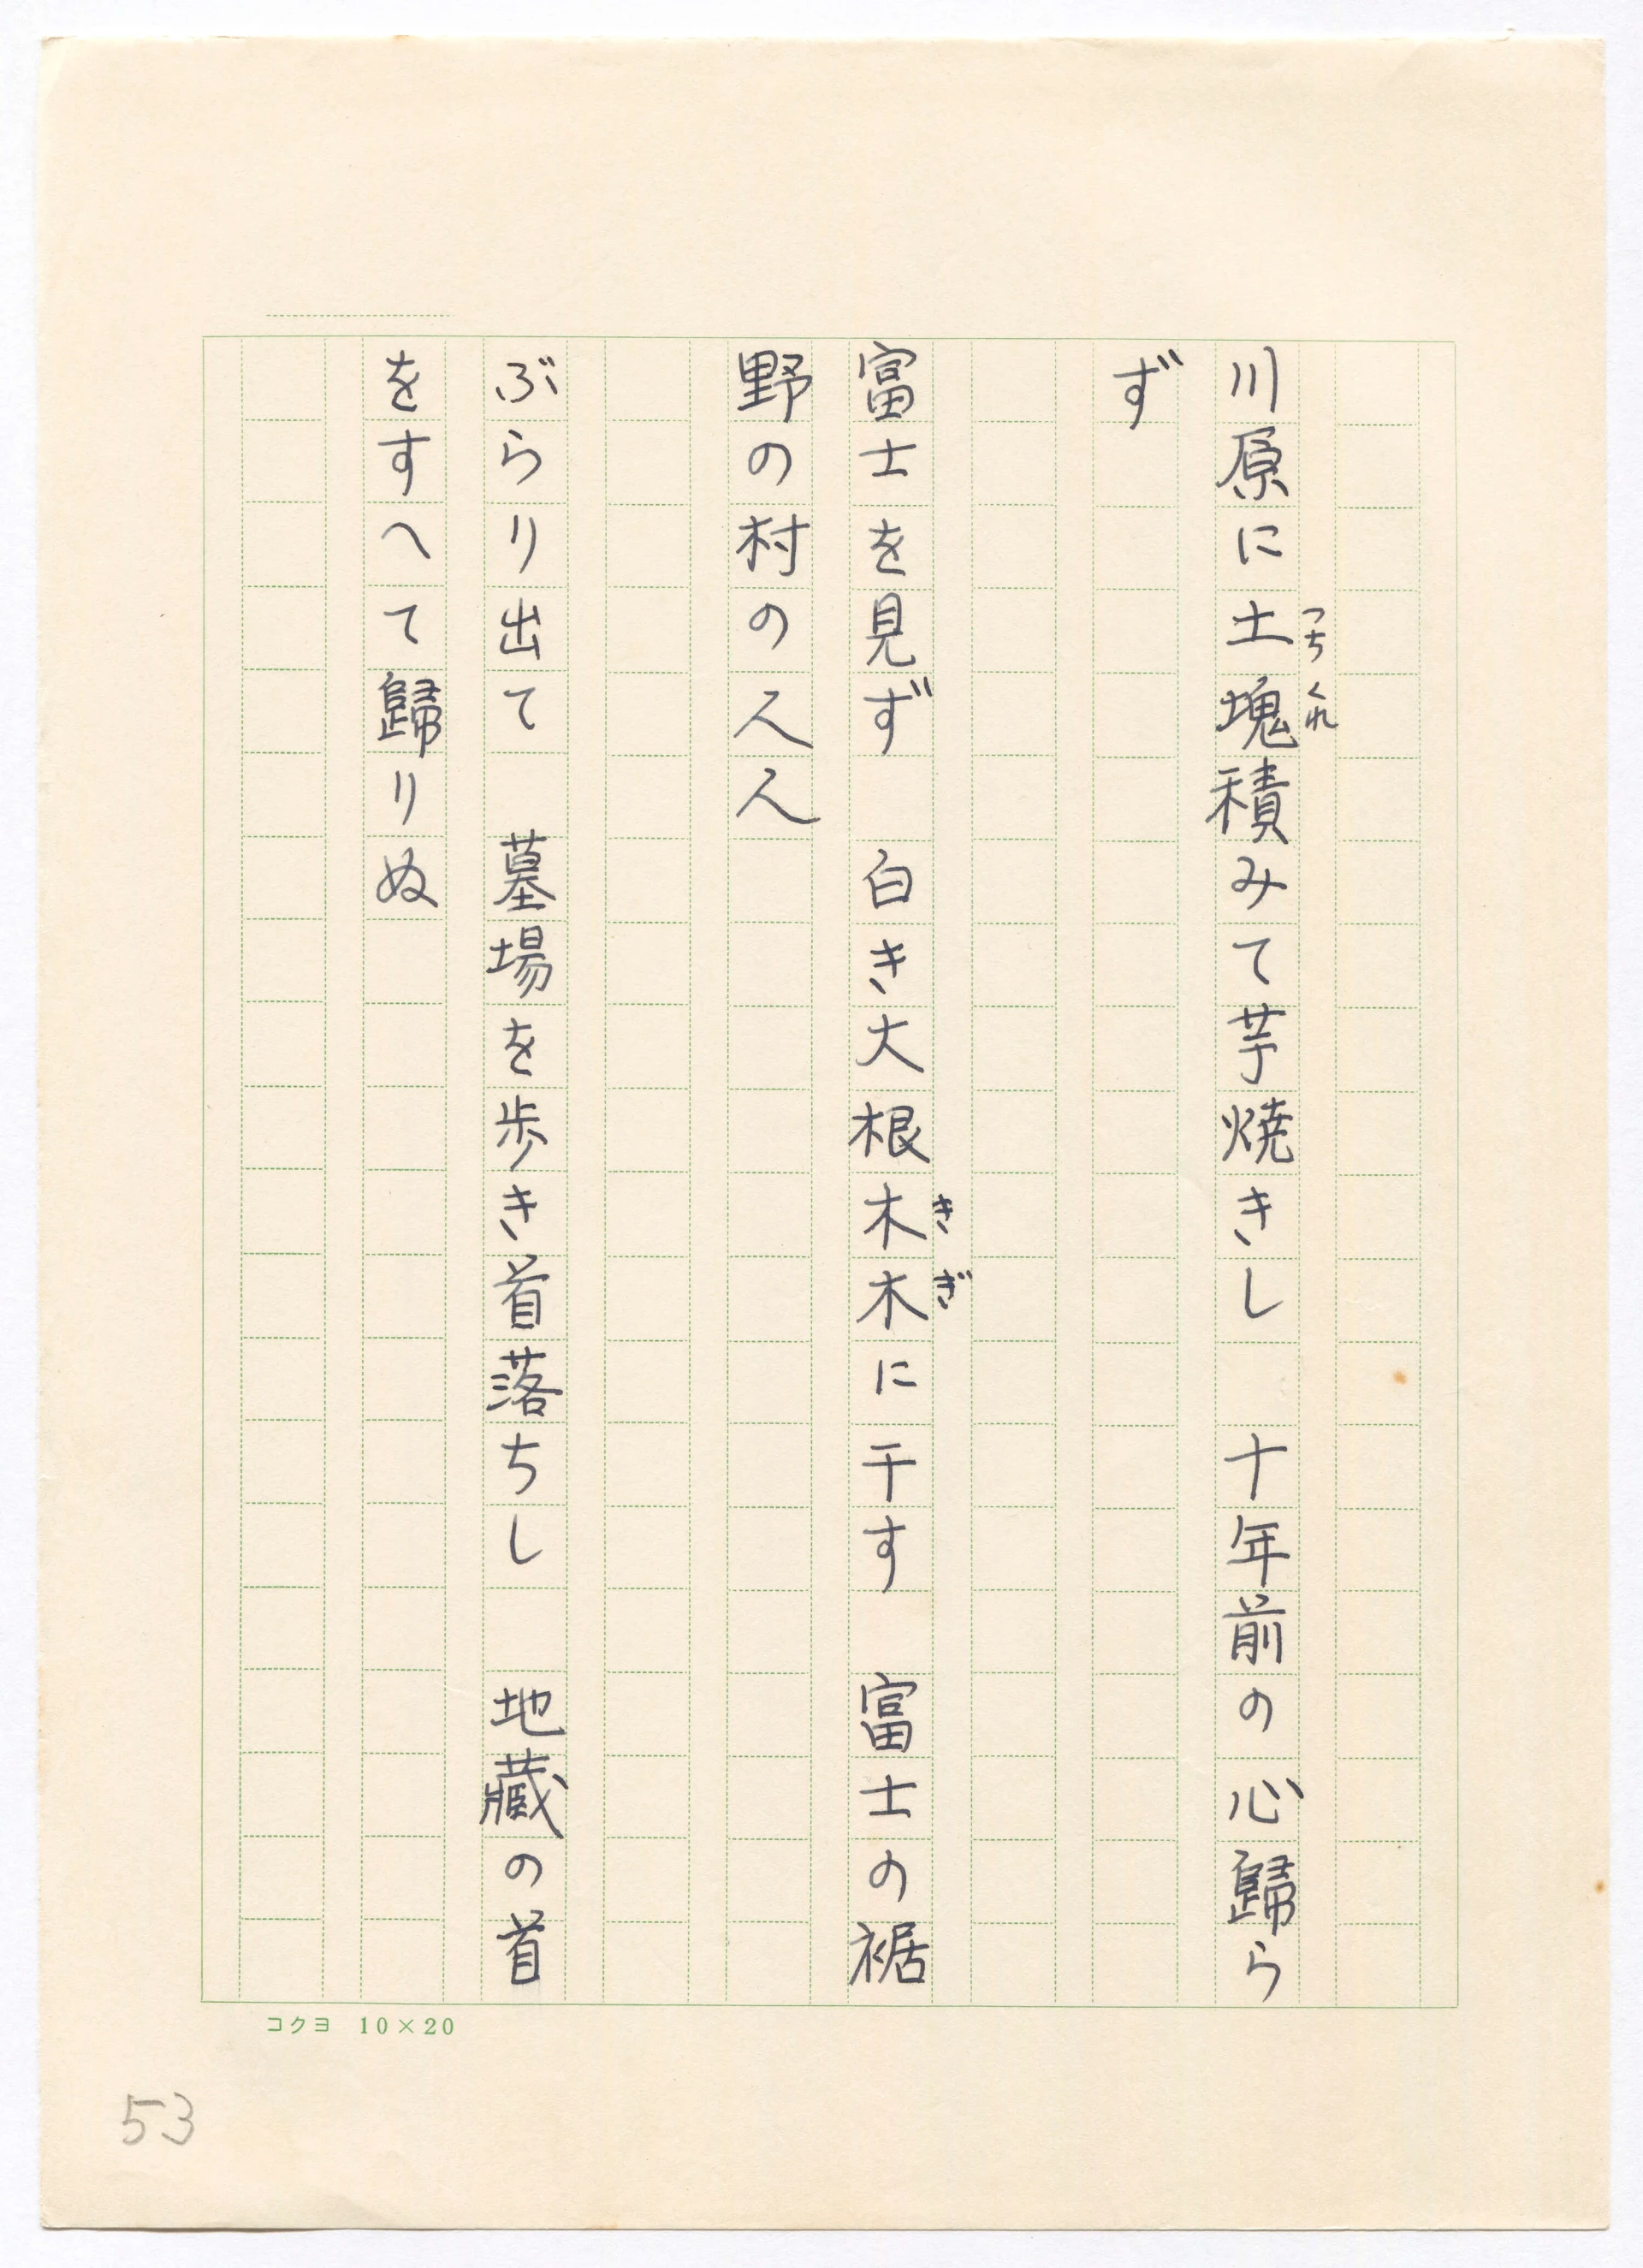 川原に土塊積みて芋焼きし　十年前の心歸ら
つちくれ
ず
富士を見ず　白き大根木木に干す　富士の裾
きぎ
野の村の人人
ぶらり出て　墓場を歩き首落ちし　地藏の首
をすへて歸りぬ
コクヨ 10×20
53